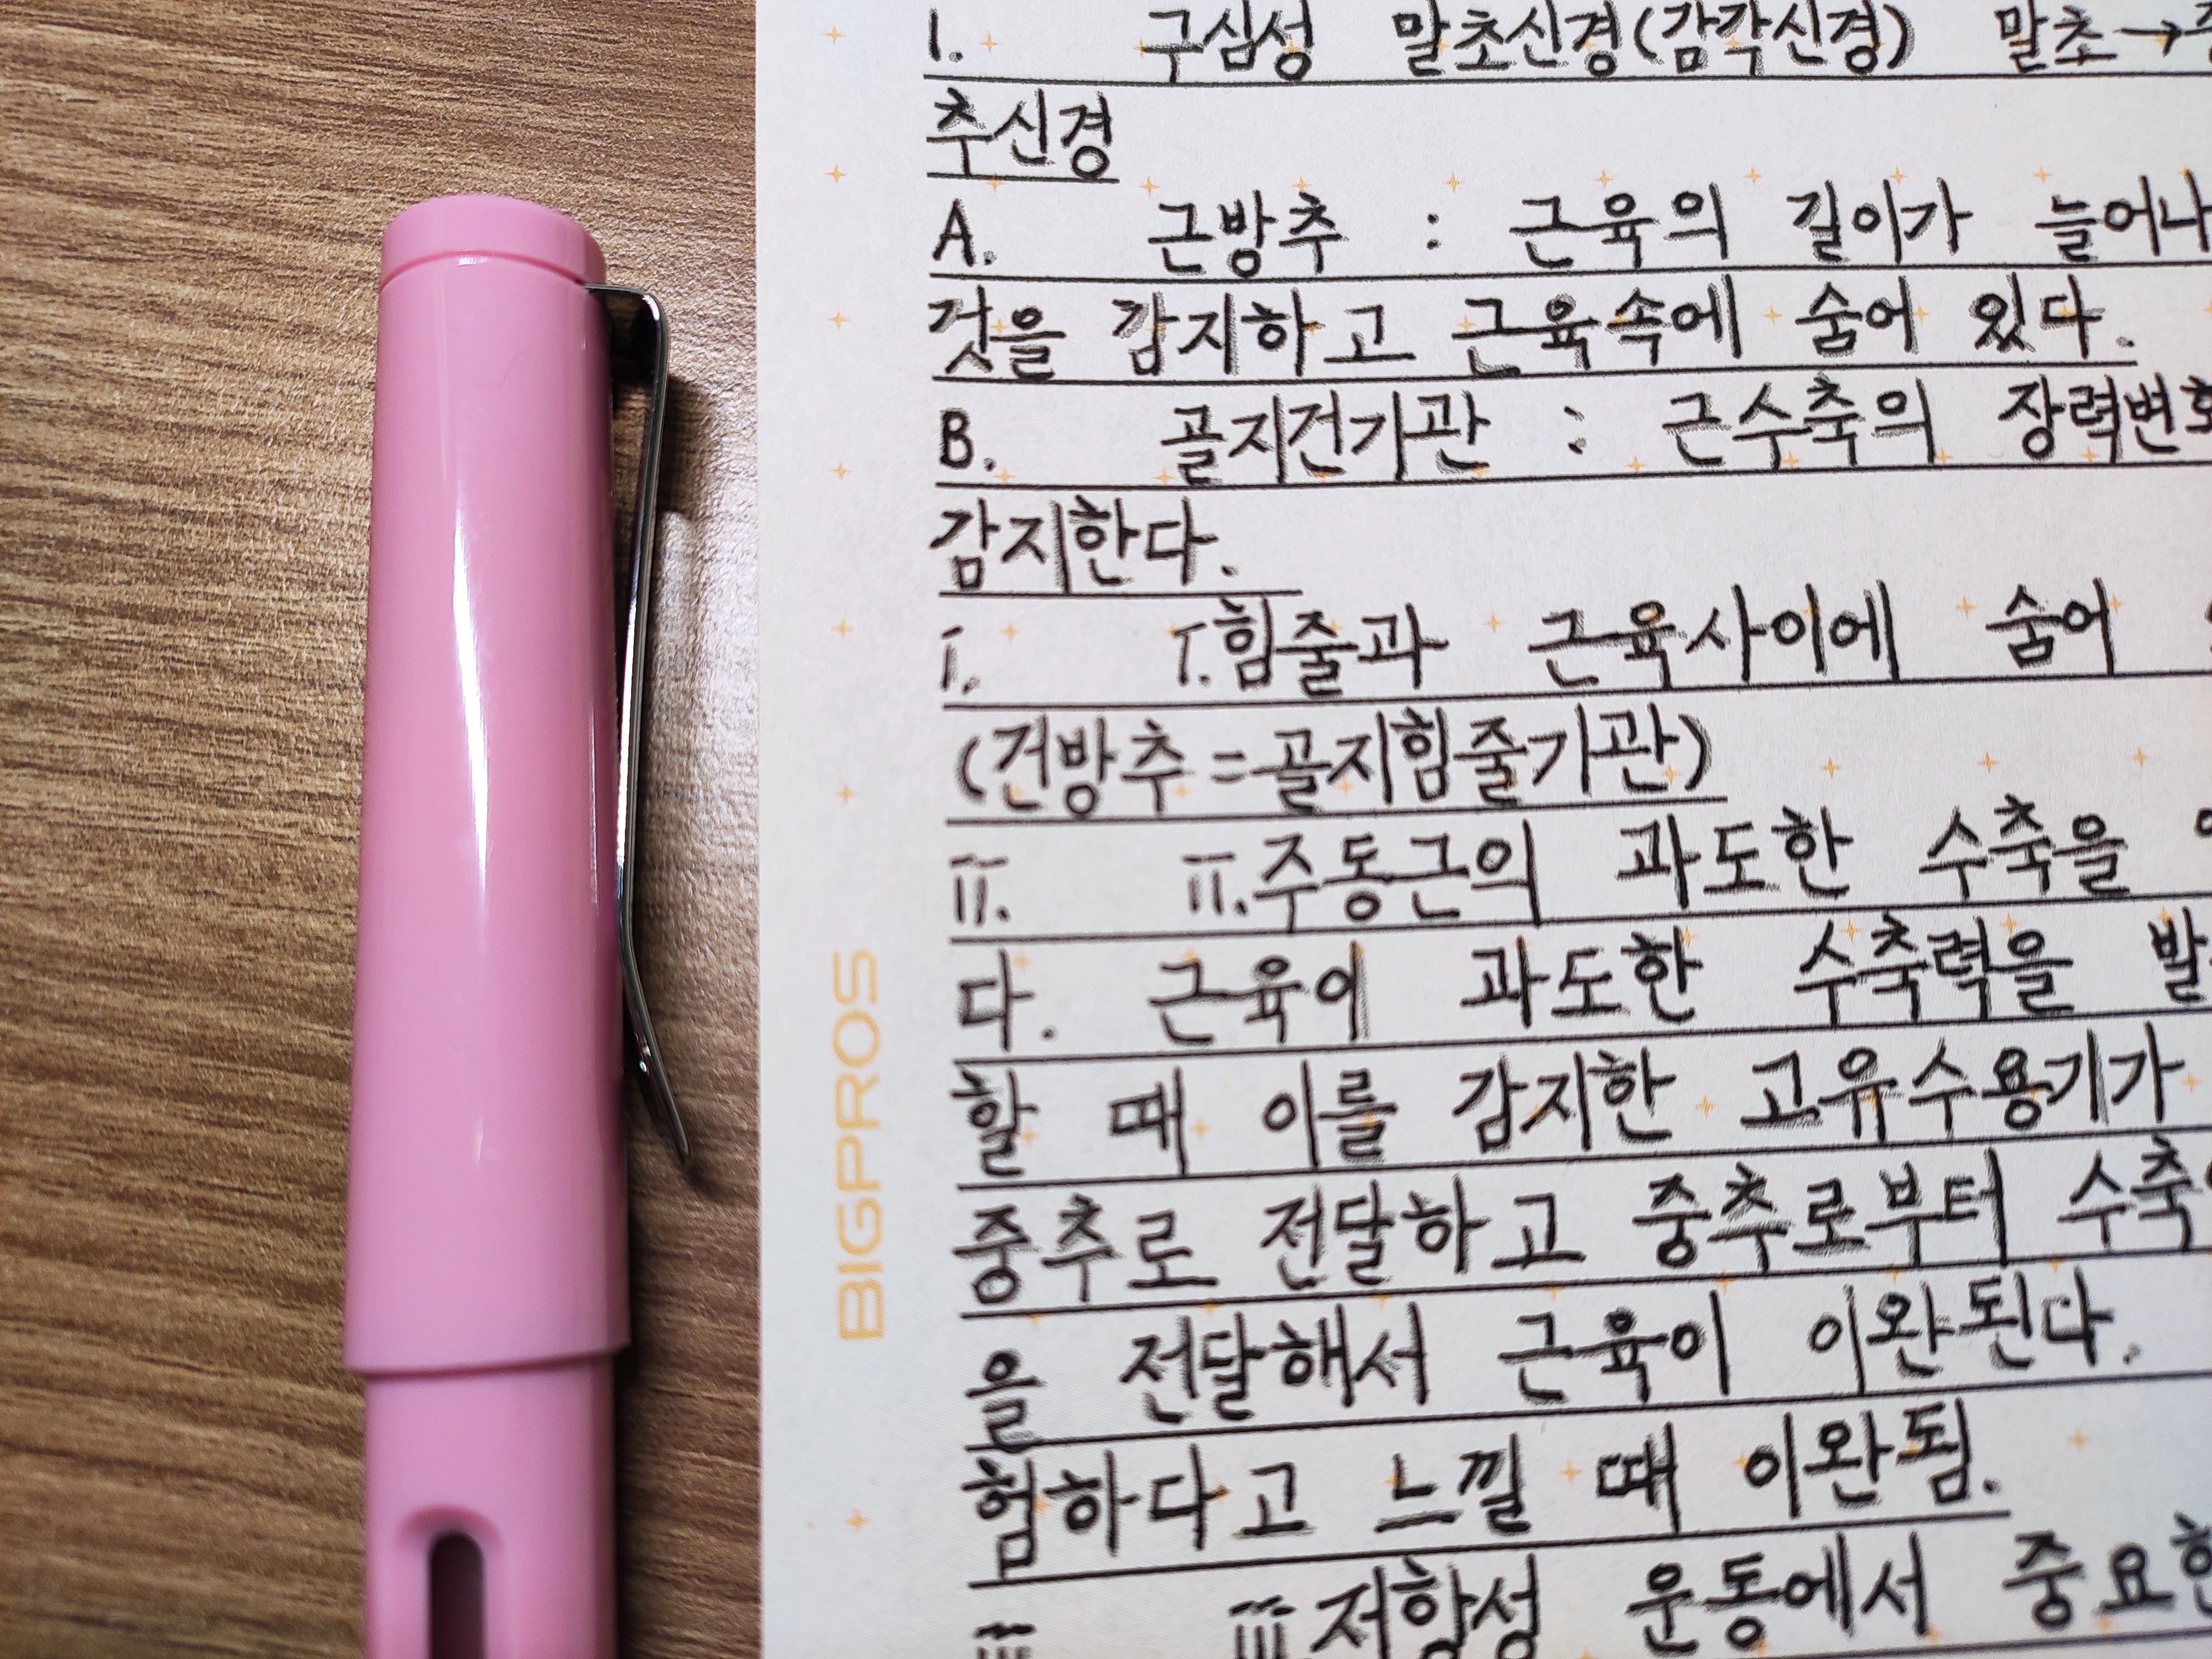 1. 구심성 말초신경(감각신경) 말초→
추신경
A. 근방추 : 근육의 길이가 늘어나
것을 감지하고 근육속에 숨어 있다.
B. 골지건기관 : 근수축의 장력변화
감지한다.
i. i.힘줄과 근육사이에 숨어
(건방추=골지힘줄기관)
ii. ii.주동근의 과도한 수축을
다. 근육이 과도한 수축력을 발
할 때 이를 감지한 고유수용기가
중추로 전달하고 중추로부터 수축
을 전달해서 근육이 이완된다.
험하다고 느낄 때 이완됨.
iii iii저항성 운동에서 중요한
BIGPROS